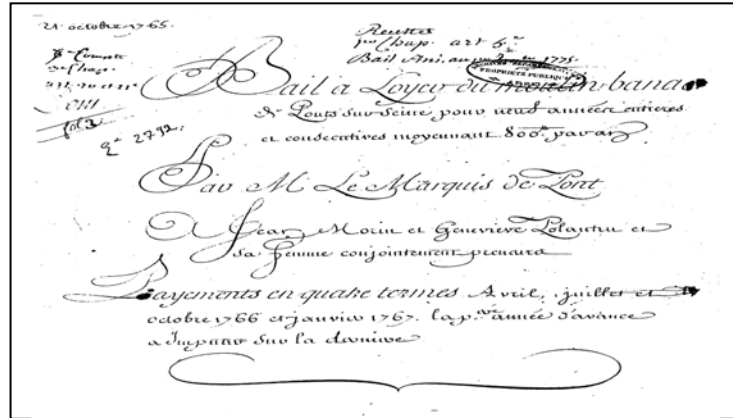 21 octobre 1765.
Recettes
1er Chap. art 6.e
Bail Ani. au 1775
PROPRIÉTÉ PUBLIQUE
Compte
Chap.
fol 3
E. 2792.
Bail a Loyer du moulin banal
de Ponts sur Seine pour neuf années entieres
et consecutives moyennant 800.tt par an
Par M Le Marquis de Pont
A Jean Morin et Genevieve et
sa femme conjointement preneurs
Payements en quatre termes Avril, juillet et
octobre 1766 et janvier 1767. la p.ere année d'avance
a imputer sur la derniere